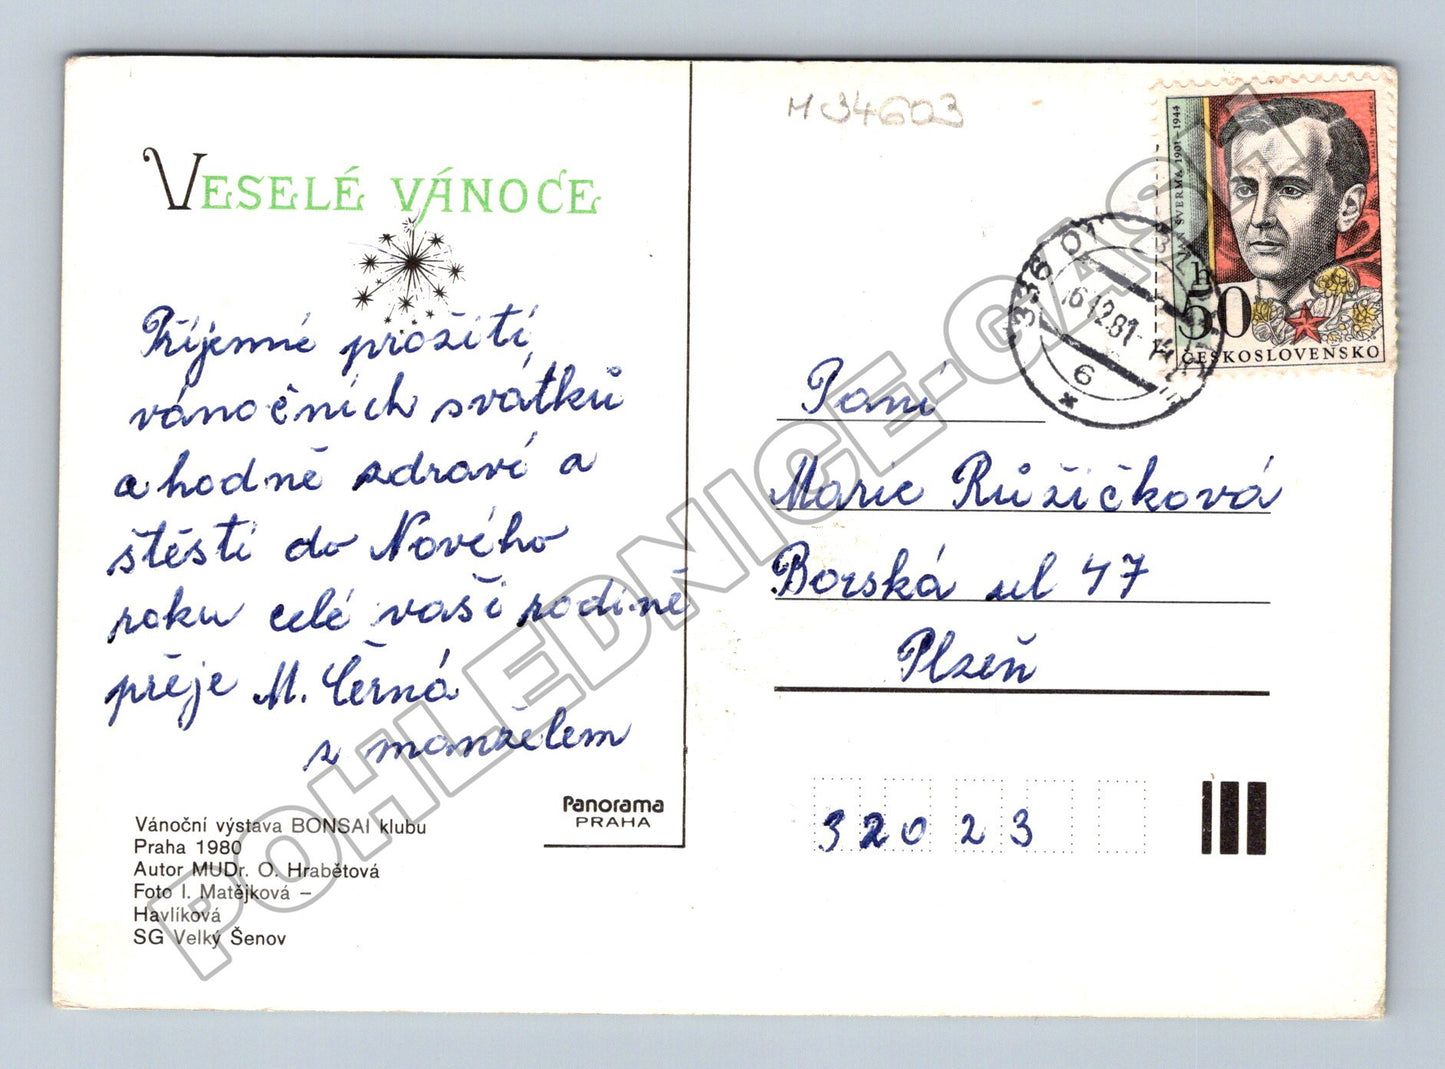 VESELÉ VÁNOCE
Příjemné prožití
vánočních svátků
a hodně zdraví a
štěstí do Nového
roku celé vaší rodině
přeje M. Černá
s manželem
Vánoční výstava BONSAI klubu
Praha 1980
Autor MUDr. O. Hrabětová
Foto I. Matějková –
Havlíková
SG Velký Šenov
Panorama
PRAHA
M 34603
ŠVERMA 1901–1944
50 h
ČESKOSLOVENSKO
336
16.12.81-14
6
Paní
Marie Růžičková
Borská ul 47
Plzeň
32023
POHLEDNICE-CASH